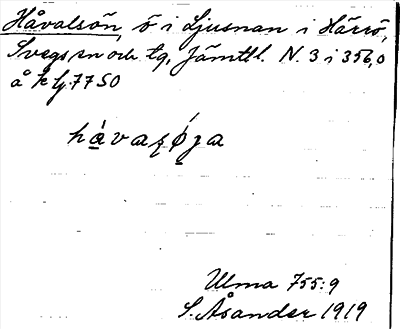 Håvalsön, ö i Ljusnan i Härrö,
Svegs sn och tg, Jämtl l. N. 3 i 356,0
å k bj. 77 SO
Ulma 755:9
S. Åsander 1919